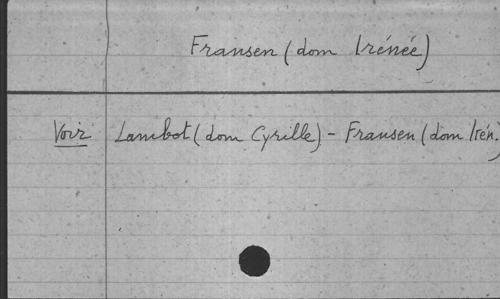 Fransen (dom Irénée)
Voir Lambot (dom Cyrille) - Fransen (dom Irén.)